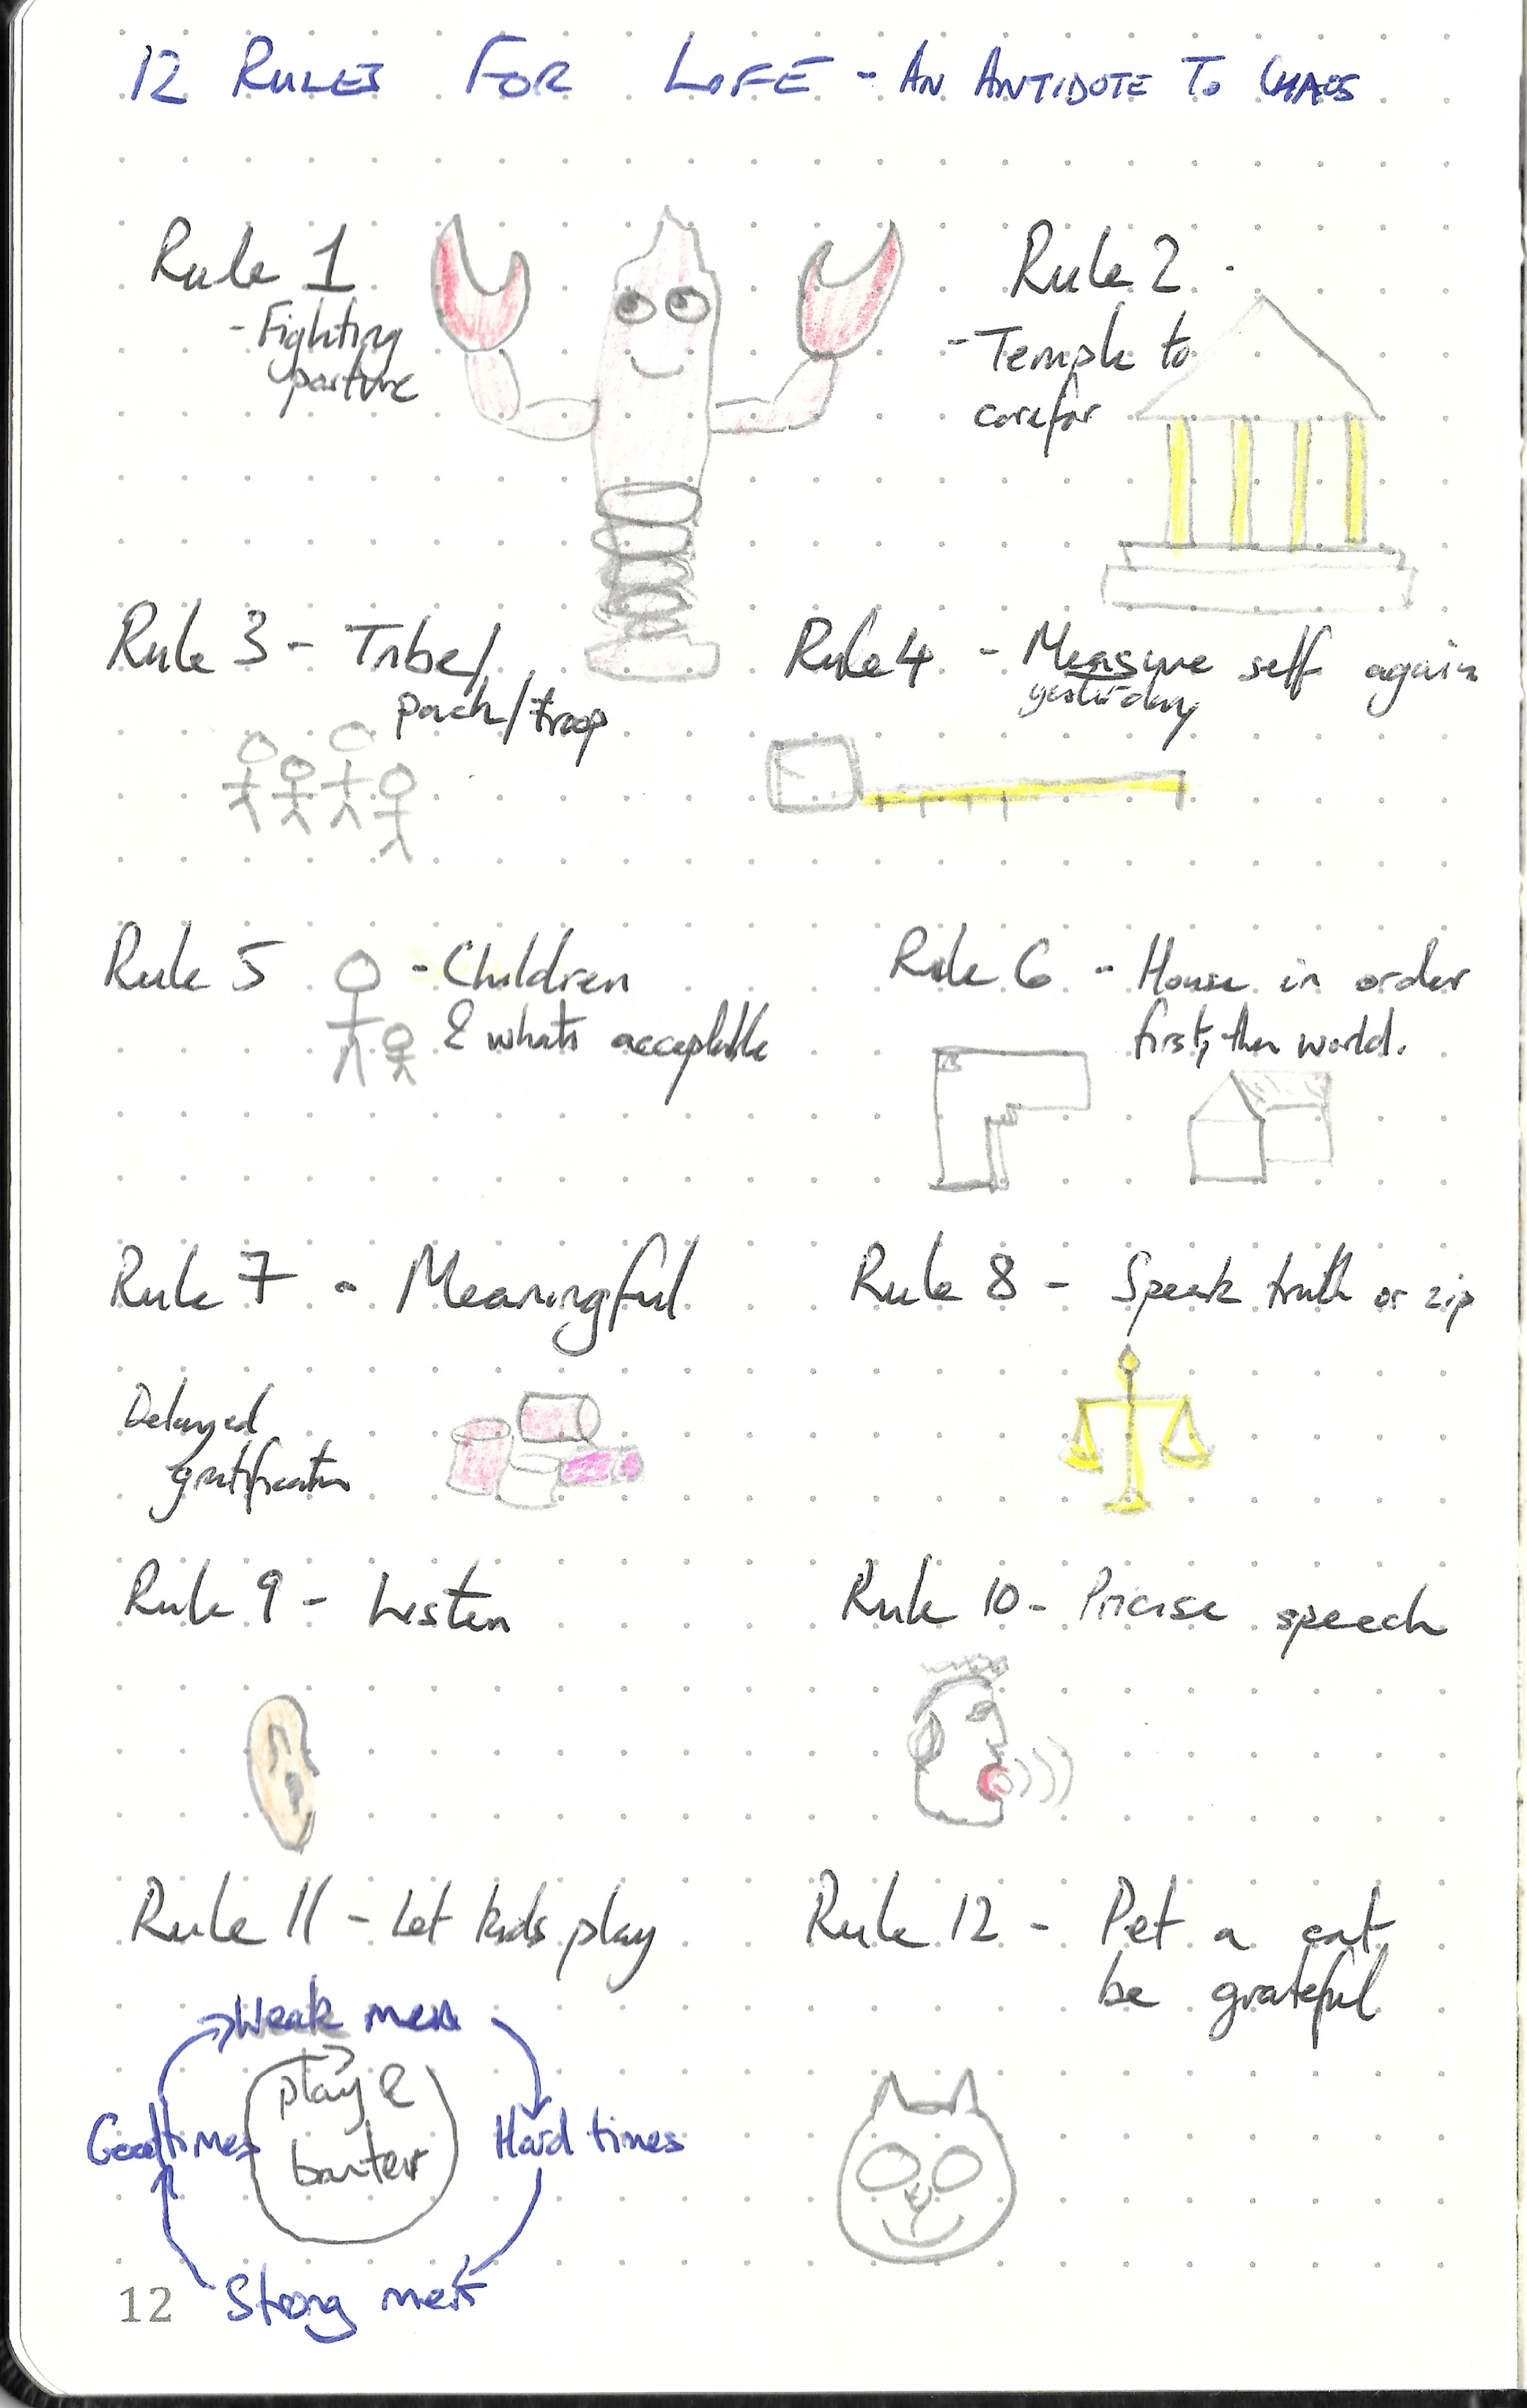 12 RULES FOR LIFE - AN ANTIDOTE TO CHAOS
Rule 1
- Fighting
posture
Rule 2
- Temple to
care for
Rule 3 - Tribe/
pack/troop
Rule 4 - Measure self again
yesterday
Rule 5 - Children
& whats acceptable
Rule 6 - House in order
first, then world.
Rule 7 - Meaningful
Delayed
gratification
Rule 8 - Speak truth or zip
Rule 9 - Listen
Rule 10 - Pricise speech
Rule 11 - Let kids play
Weak men
play &
banter
Good times
Hard times
Strong men
Rule 12 - Pet a cat
be grateful
12